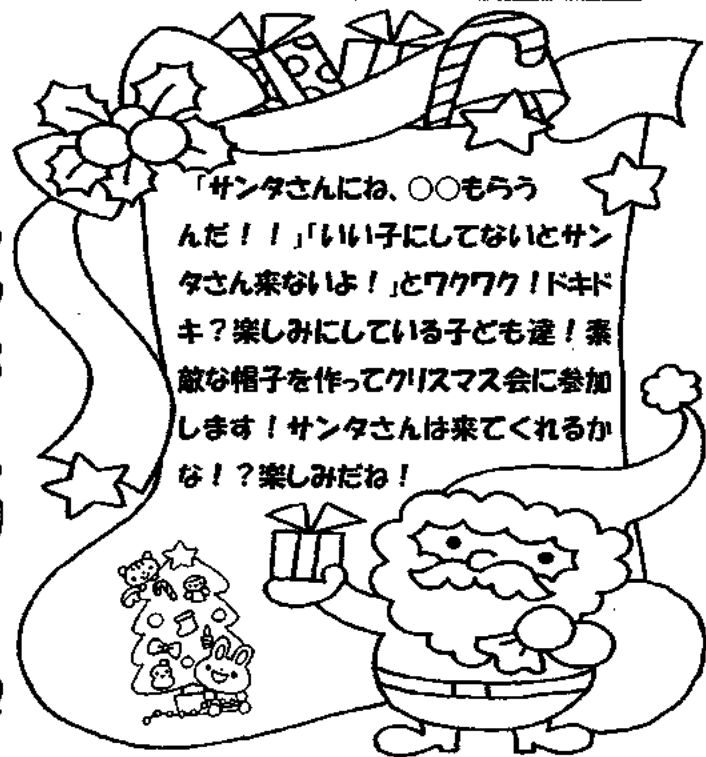 「サンタさんにね、○○もらう
んだ！！」「いい子にしてないとサン
タさん来ないよ！」とワクワク！ドキド
キ？楽しみにしている子ども達！素
敵な帽子を作ってクリスマス会に参加
します！サンタさんは来てくれるか
な！？楽しみだね！